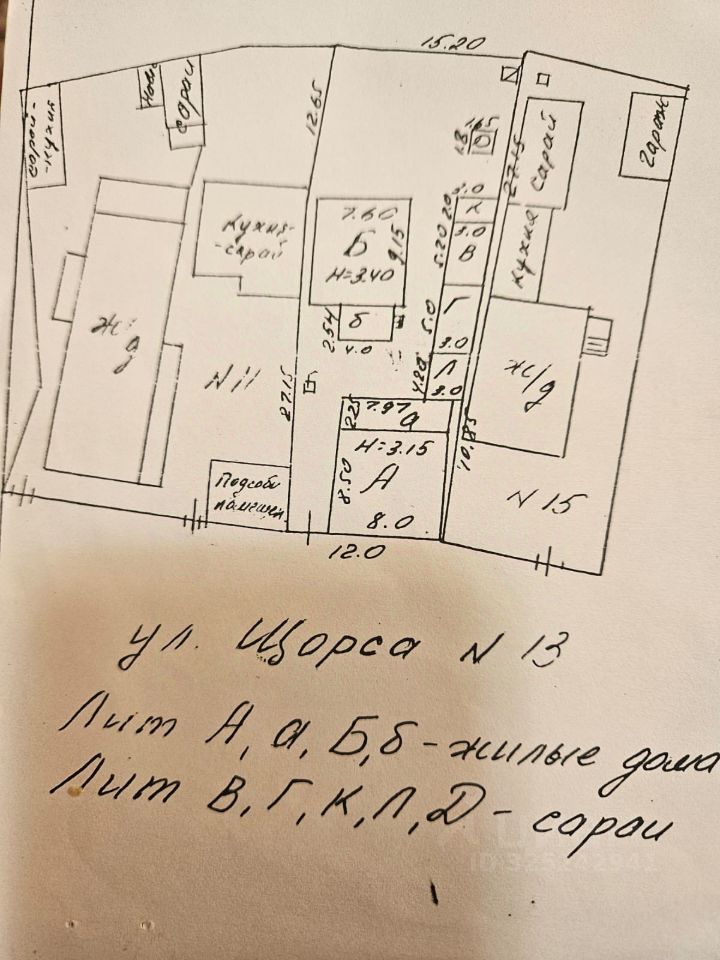 15.20
сарай-
-кухня
Нов
сарай
12.65
1.3
27.15
сарай
Гараж
Кухня-
-сарай
7.60
Б
9.15
Н=3.40
3.0
2.0
К
3.0
В
5.20
кухня
2.54
б
4.0
5.0
Г
3.0
ж/д
N 11
27.15
4.20
Л
3.0
ж/д
2.25
7.97
а
Н=3.15
10.85
8.50
А
8.0
N 15
Подсобн
помещен.
12.0
ул. Щорса N 13
Лит А, а, Б, б - жилые дома
Лит В, Г, К, Л, Д - сараи